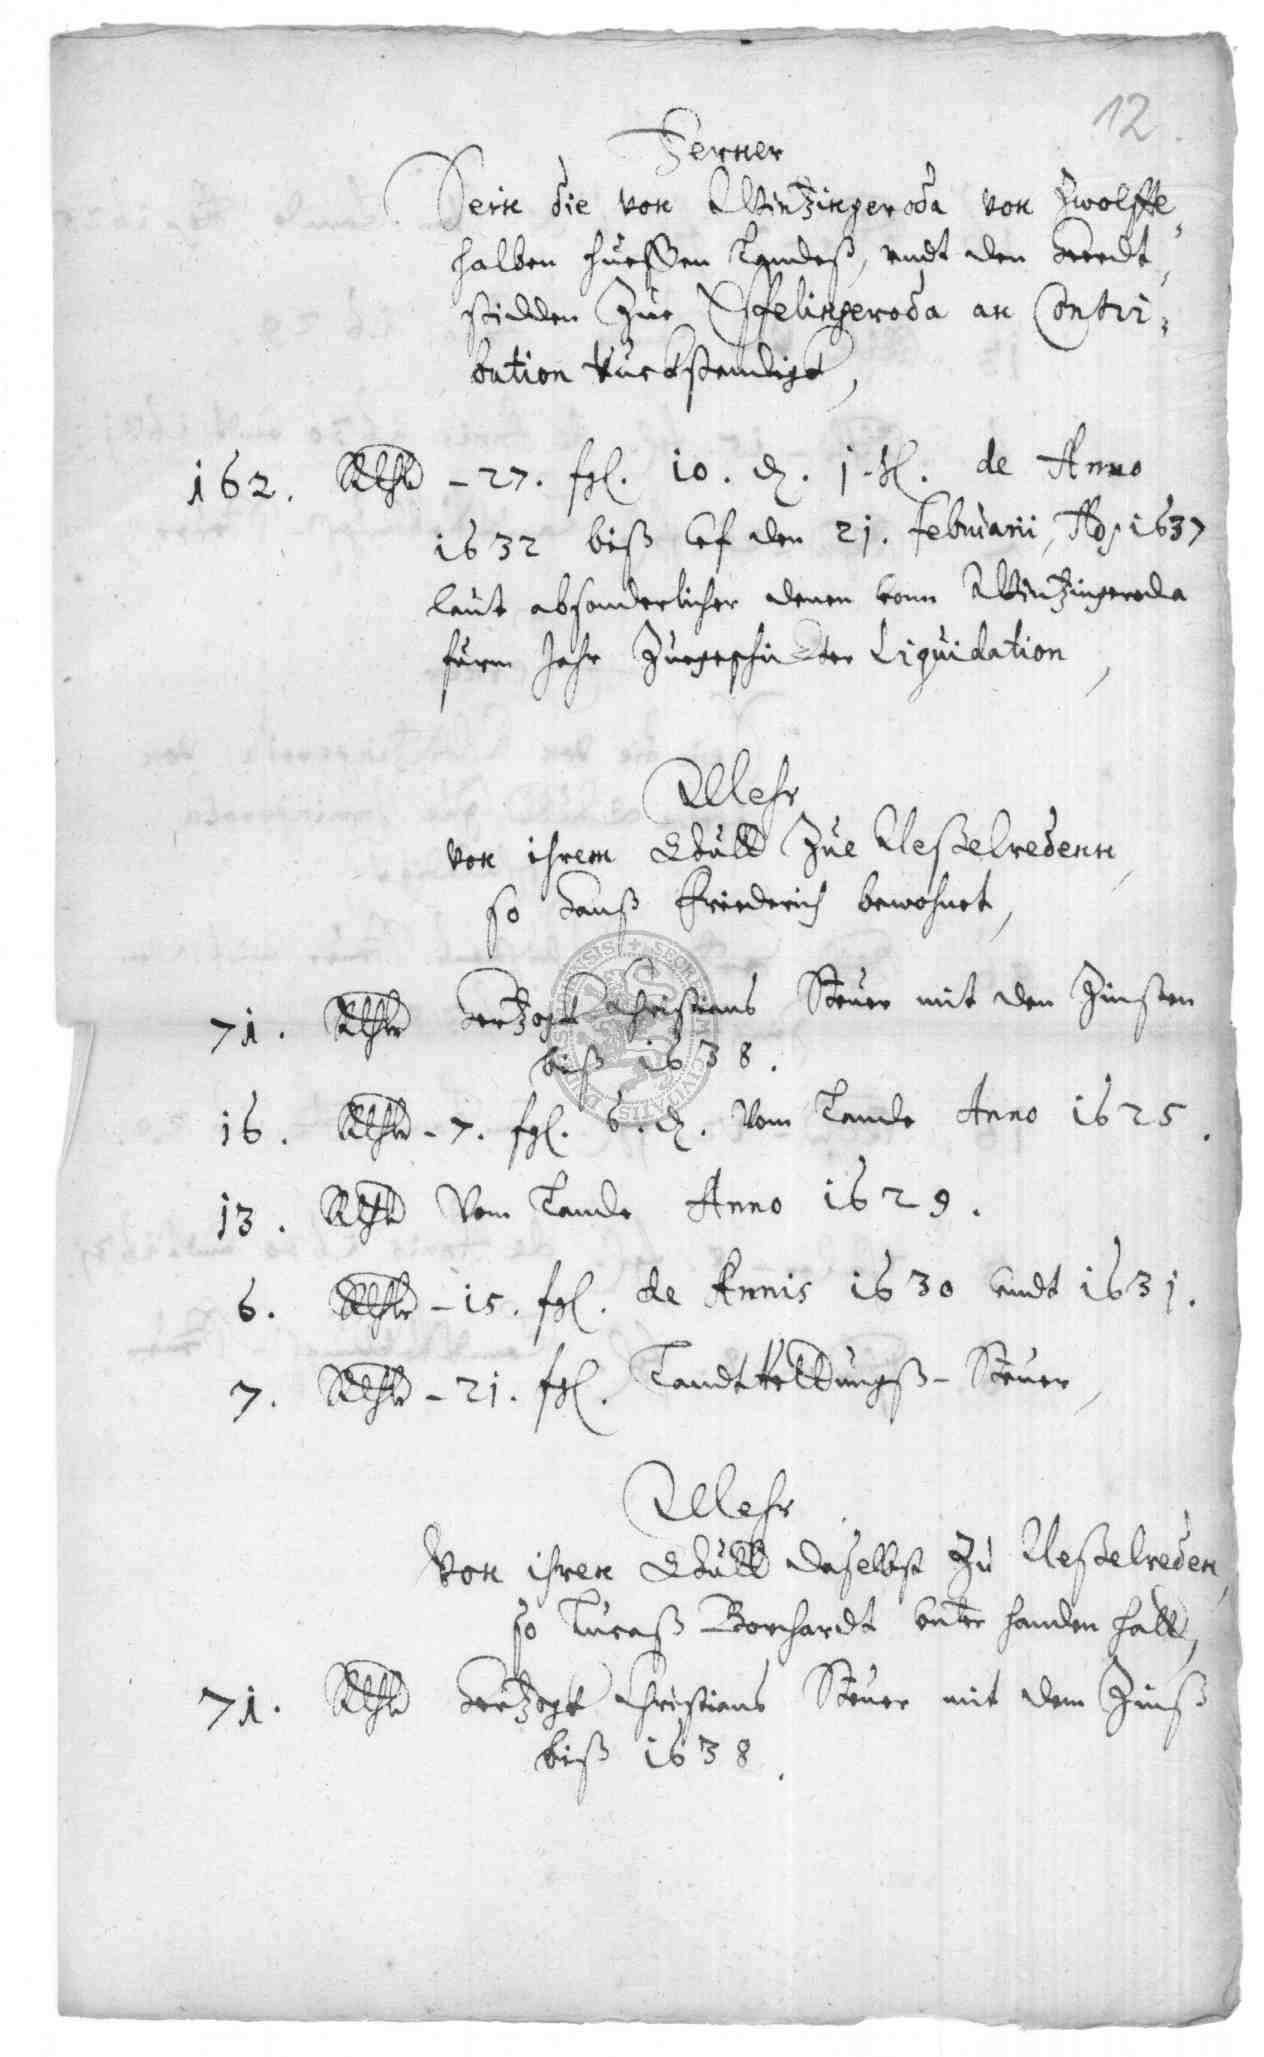 12
Ferner
Sein die von Wintzingeroda von Zwolffte
halben Hueffen Landeß, undt den
zue Esselingeroda an Contri
bution Ruckstendigk,
162. Rthlr - 27. fgl. 10. ₰. j. hl. de Anno
1632 biß uf den 21. Februarii, Ao 1637
laut absonderlicher denen vonn Wintzingeroda
fürm Jahr Zuegeschickter Liquidation,
Mehr
von ihrem Guětt Zue Neßelredenn,
so Hanß Friederich bewohnet,
71. Rthlr Hertzogk Christians Steuer mit den Zinßen
biß 1638.
16. Rthlr - 7. fgl. 6. ₰. vom Lande Anno 1625.
13. Rthlr vom Lande Anno 1629.
6. Rthlr - 15. fgl. de Annis 1630 undt 1631.
7. Rthlr - 21. fgl. Landtrettungß-Steuer,
Mehr
Von ihren daselbst zu Neßelreden,
so Lucaß Borchardt unter handen hatt,
71. Rthlr Hertzogk Christians Steuer mit dem Zinß
biß 1638.